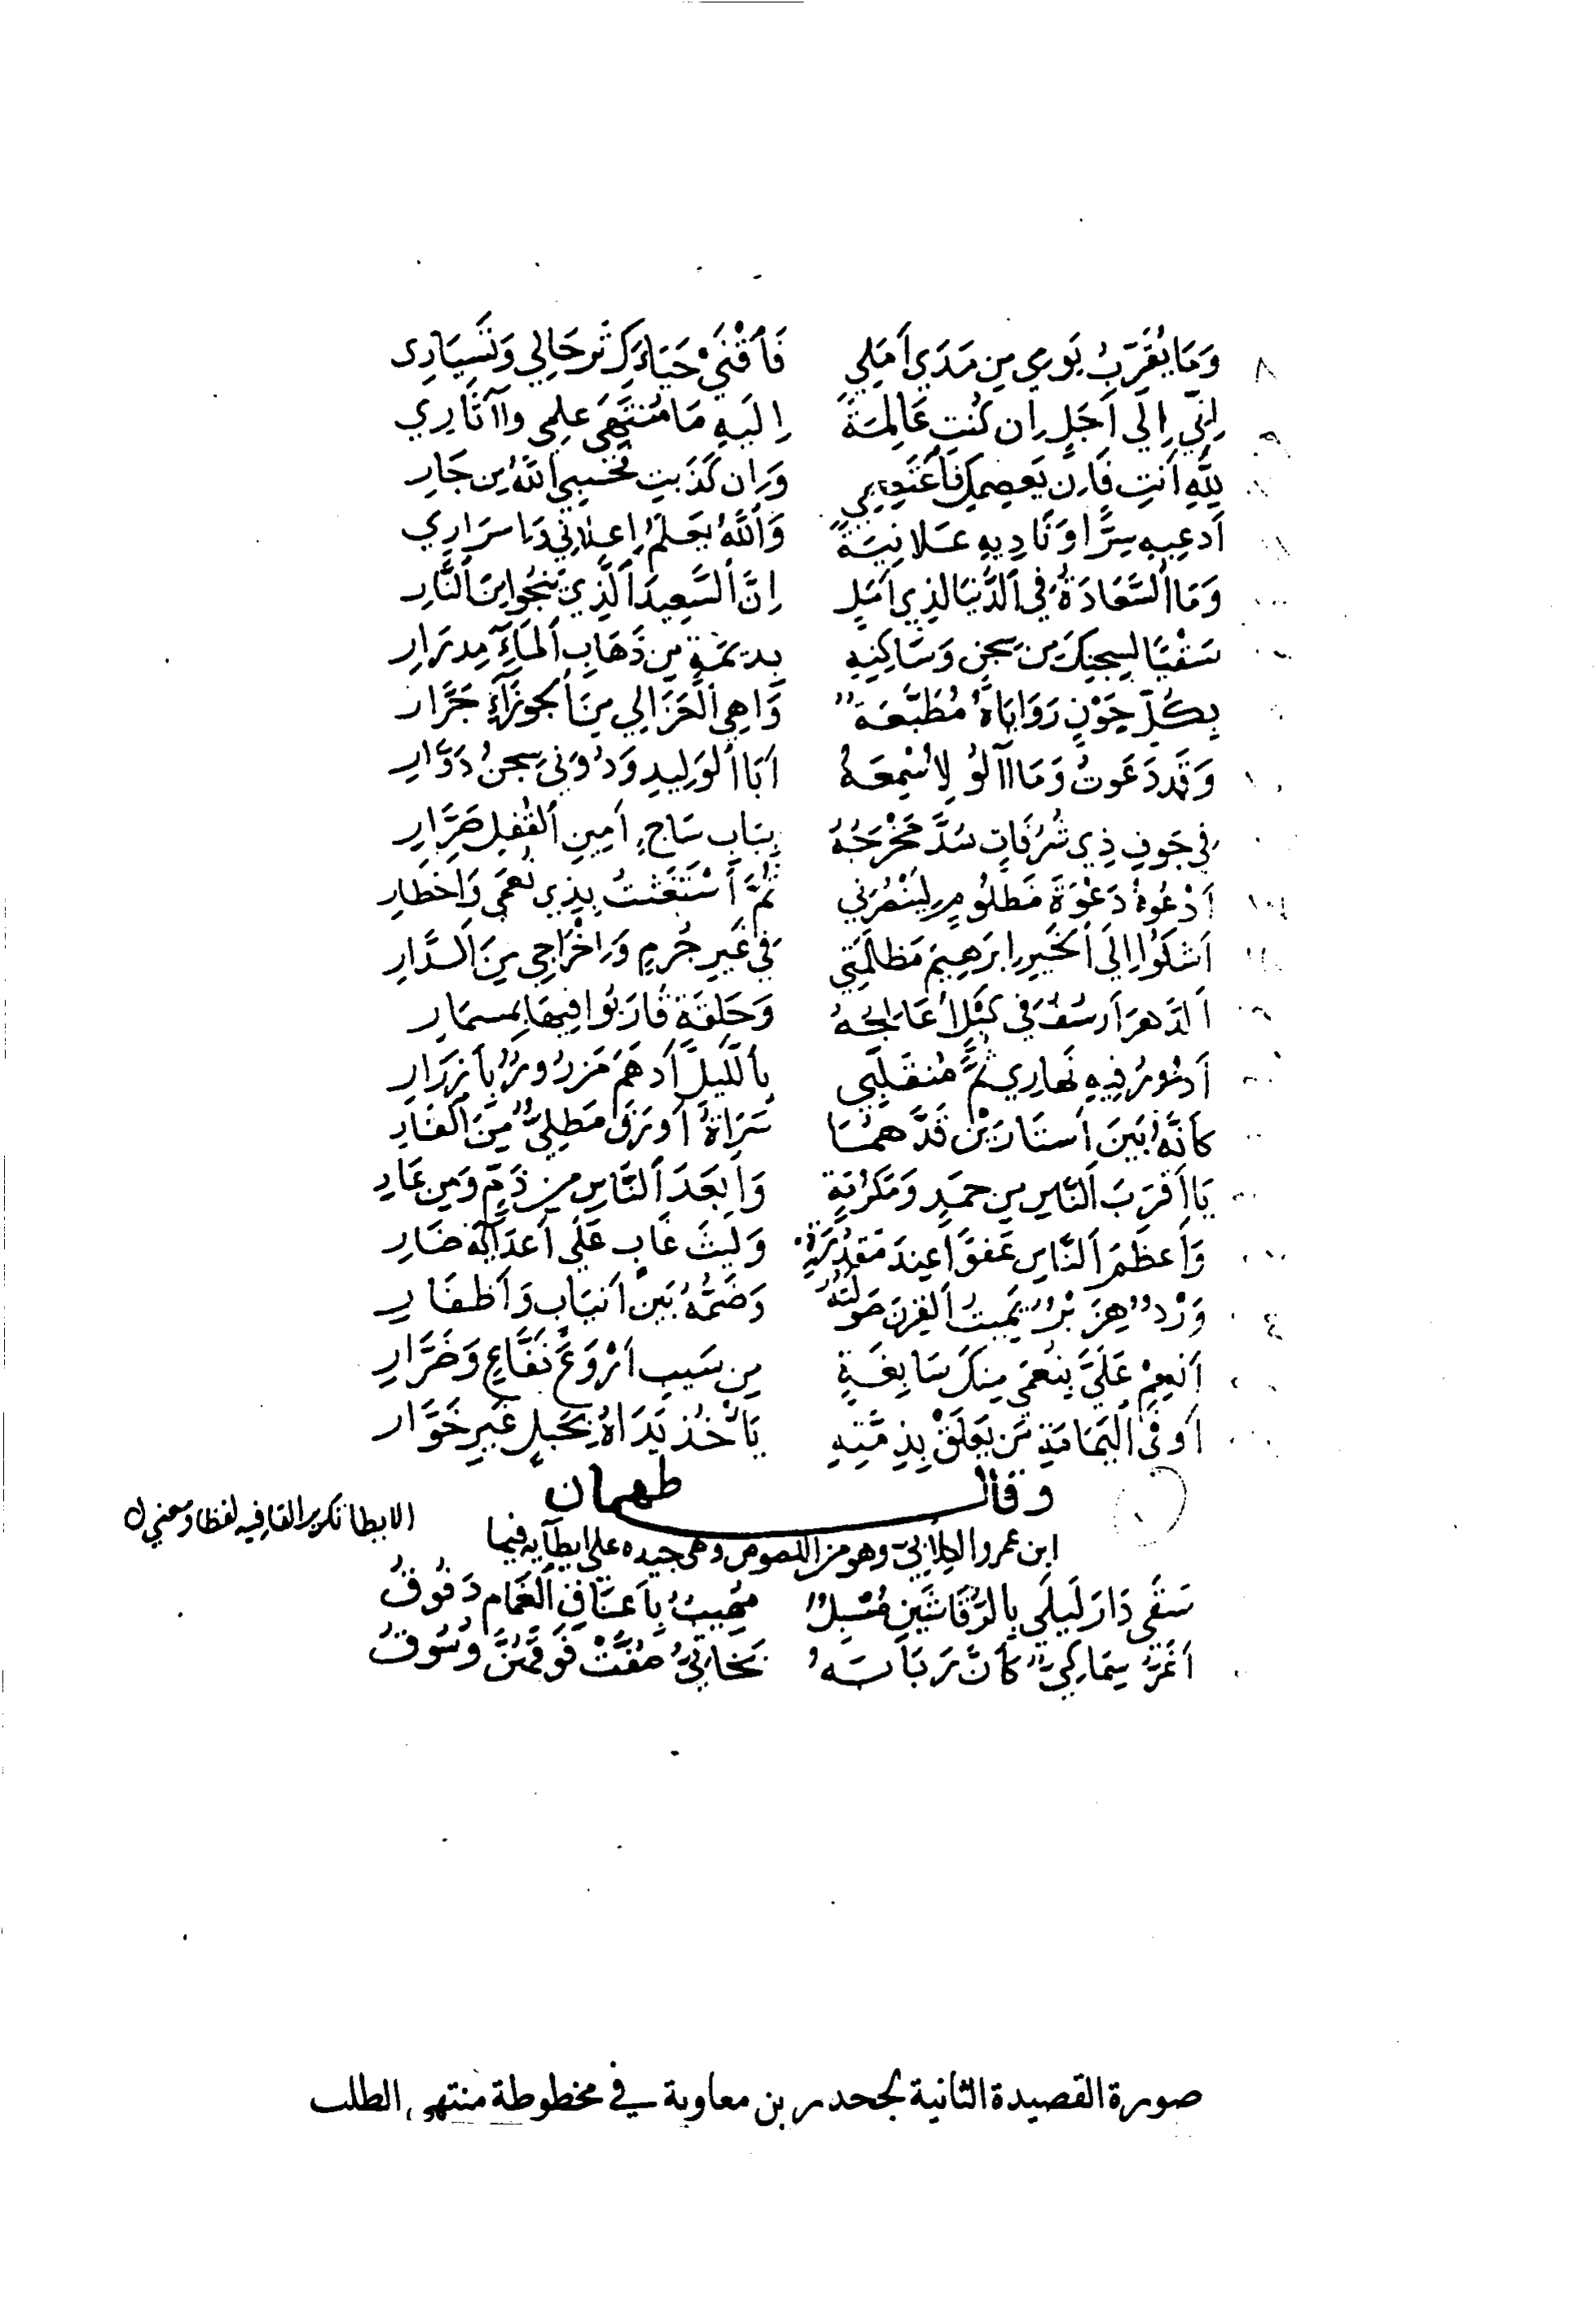 ٨ وَمَا يُقَرِّبُ يَومِي مِن مَدَي أَمَلِي فَأقْنَيْ حَيَاءَكِ تَرحَالِي وَتَسيَارِي
٩ إِنِّي إِلَي أَجَلٍ إِن كُنتِ عَالِمَةً إِلَيهِ مَا مُنتَهَي عِلمِي وآثَارِي
لِلَّهِ أَنتِ فَإِن يَعصِمكِ فَأعتَصِمِي وَإِن كَذَبتِ فَحَسبِي اللَّهُ مِن جَارِ
أَدعِيهِ سِرًّا وَنَادِيهِ عَلَانِيَةً وَاللَّهُ يَعلَمُ إِعلَانِي وَإِسرَارِي
وَمَا السَّعَادَةُ فِي الدُّنيَا لِذِي أَمَلٍ إِنَّ السَّعِيدَ الَّذِي يَنجُوا مِنَ النَّارِ
سَقْيًا لِسِجنِكَ مِن سِجنٍ وَسَاكِنِهِ بِدِيمَةٍ مِن ذَهَابِ المَآءِ مِدرَارِ
بِكُلِّ جَوْنٍ رَوَايَاهُ مُطَبَّعَةٌ وَاهِي العَزَالِي مِنَ الجَوزَآءِ جَرَّارِ
وَقَد دَعَوتُ وَمَا آلُو لِأُسْمِعَهُ أَبَا الوَلِيدِ وَدُونِي سِجنُ دَوَّارِ
فِي جَوفِ ذِي شُرُفَاتٍ سُدَّ مَخْرَجُهُ بِبَابِ سَاجٍ أَمِينِ القُفلِ صَرَّارِ
أَدْعُوهُ دَعْوَةَ مَظلُومٍ لِيَنْصُرَنِي ثُمَّ أسْتَغَثتُ بِذِي نُعمَي وَأَخطَارِ
أَشكُوا إِلَي الخَيرِ إِبرَهِيمَ مَظلَمَتِي فِي غَيرِ جُرمٍ وَإِخْرَاجِي مِنَ الدَّارِ
أَلدَّهرَ أَرسُفُ فِي كَبلٍ أُعَالِجُهُ وَحَلقَةٍ قَارَبُوا فِيهَا بِمِسمَارِ
أَدُورُ فِيهِ نَهَارِي ثُمَّ مُنقَلَبِي بِاللَّيلِ أَدهَمُ مَزرُورٌ بِأَزرَارِ
كَأَنَّهُ بَينَ أستَارَيْنِ قَدَّهمَا سَرَاةُ أَورَقَ مَطلِيٍّ مِنَ القَارِ
يَا أَقرَبَ النَّاسِ مِن حَمدٍ وَمَكرُمَةٍ وَأَبعَدَ النَّاسِ مِن ذَمٍّ وَمِن عَارِ
وَأَعظَمَ النَّاسِ عَفوًا عِندَ مَقدُرَةٍ وَلَيثَ غَابٍ عَلَي أَعدَآئِهِ ضَارِ
وَرْدٌ هِزَبْرٌ يُمِيتُ القِرنَ صَولَتُهُ وَضَمُّهُ بَينَ أَنيَابٍ وَأَظفَارِ
أَنعِمْ عَلَيَّ بِنُعمَي مِنكَ سَابِغَةٍ مِن سَيبِ أَرْوَعَ نَفَّاعٍ وَضَرَّارِ
أَوفَي اليَمَامَةِ مَن يَعلَقْ بِذِمَّتِهِ يَأخُذ يَدَاهُ بِحَبلٍ غَيرِ خَوَّارِ
وقال طهمان
ابن عمرو الكلابيّ وهو من اللصوص وهي جيده علي ايطآيه فيها
الايطا تكرير القافيه لفظا ومعني
سَقَي دَارَ لَيلَي بِالرَّقَاشَينِ مُسْبِلٌ مُهِيبٌ بِأَعنَاقِ الغَمَامِ دَفُوقُ
أَغَرُّ سِمَاكِيٌّ كَأَنَّ رَبَابَهُ بَخَاتِيُّ صُفَّتْ فَوقَهُنَّ وُسُوقُ
صورة القصيدة الثانية لجحدر بن معاوية في مخطوطة منتهى الطلب